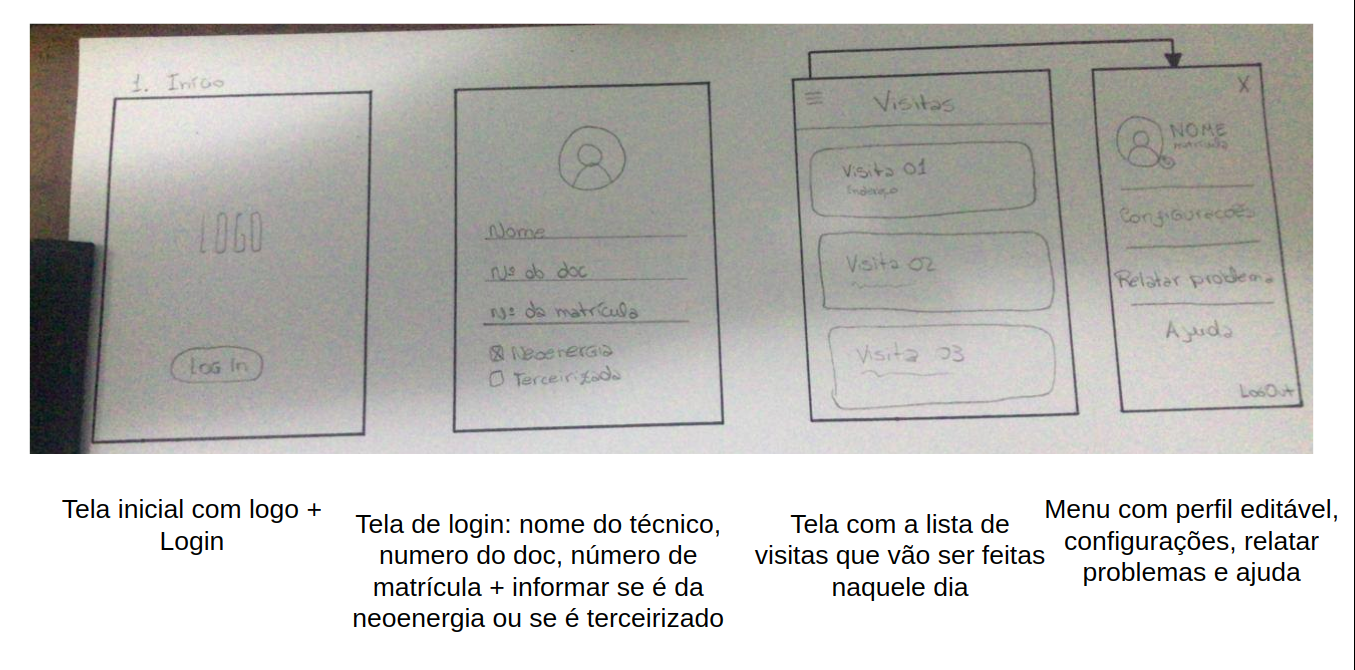 1. Início
LOGO
Log In
Nome
Nº do doc
Nº da matrícula
Neoenergia
Terceirizada
Visitas
Visita 01
Endereço
Visita 02
Visita 03
X
NOME
matrícula
Configurações
Relatar problema
Ajuda
LogOut
Tela inicial com logo +
Login
Tela de login: nome do técnico,
numero do doc, número de
matrícula + informar se é da
neoenergia ou se é terceirizado
Tela com a lista de
visitas que vão ser feitas
naquele dia
Menu com perfil editável,
configurações, relatar
problemas e ajuda